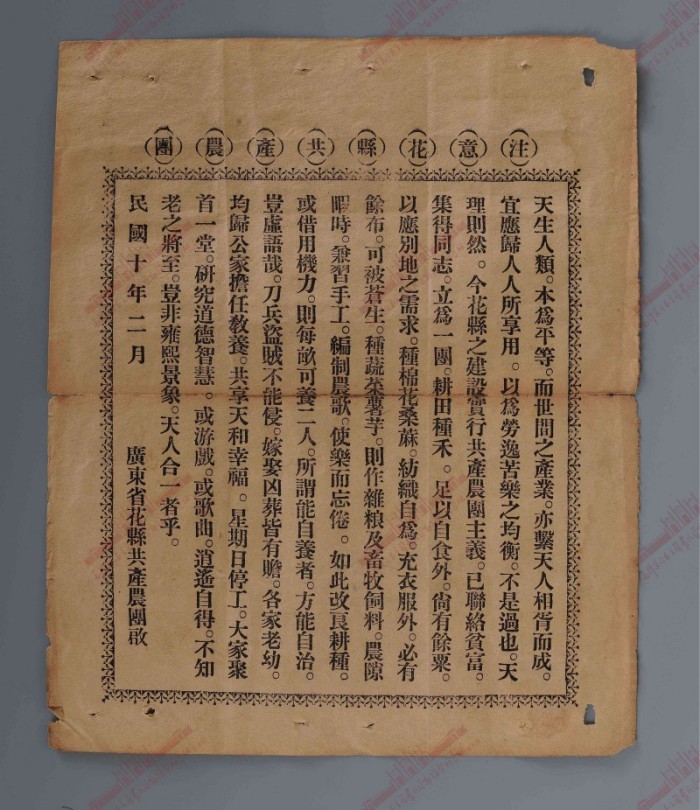 注意花縣共產農團
天生人類。本為平等。而世間之產業。亦繫天人相胥而成。
宜應歸人人所享用。以為勞逸苦樂之均衡。不是過也。天
理則然。今花縣之建設實行共產農團主義。已聯絡貧富。
集得同志。立為一團。耕田種禾。足以自食外。尙有餘粟。
以應別地之需求。種棉花桑蔴。紡織自為。充衣服外。必有
餘布。可被蒼生。種蔬菜薯芋。則作雜粮及畜牧飼料。農隙
暇時。兼習手工。編制農歌。使樂而忘倦。如此改良耕種。
或借用機力。則每畝可養二人。所謂能自養者。方能自治。
豈虛語哉。刀兵盜賊不能侵。嫁娶凶葬皆有贍。各家老幼。
均歸公家擔任敎養。共享天和幸福。星期日停工。大家聚
首一堂。研究道德智慧。或游戲。或歌曲。逍遙自得。不知
老之將至。豈非雍熙景象。天人合一者乎。
民國十年二月　廣東省花縣共產農團啟